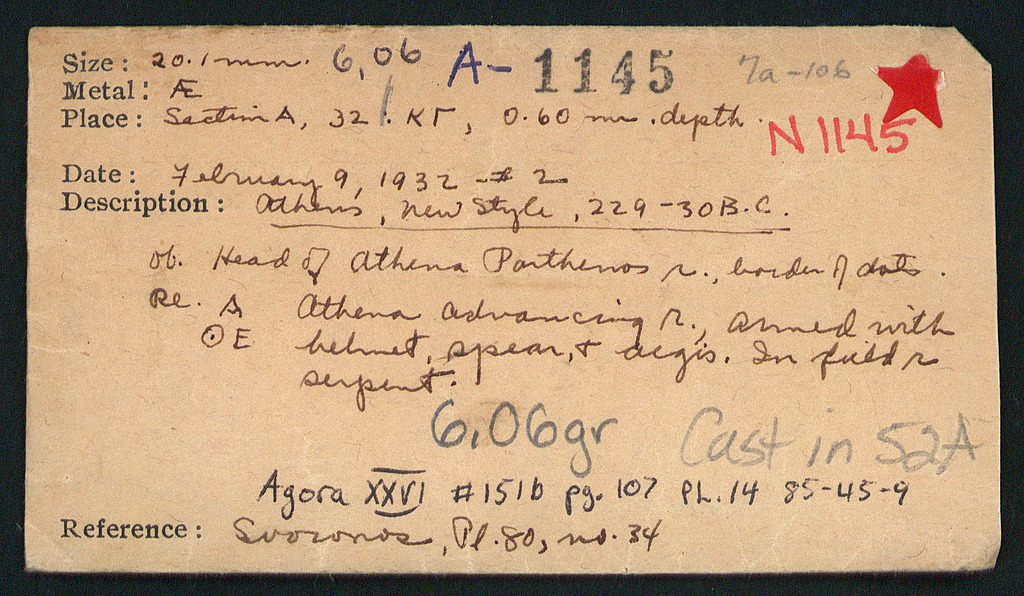 Size: 20.1 mm. 6,06 A- 1145 7a-106
Metal: Æ
Place: Section A, 32/. ΚΓ, 0.60 m. depth.
N 1145
Date: February 9, 1932 - # 2
Description: Athens, New Style, 229-30 B.C.
ob. Head of Athena Parthenos r., border of dots.
Re. A Athena advancing r., armed with
ΘE helmet, spear, & aegis. In field r
serpent.
6,06gr Cast in 52A
Agora XXVI #151b pg. 107 PL. 14 85-45-9
Reference: Svoronos, Pl. 80, no. 34